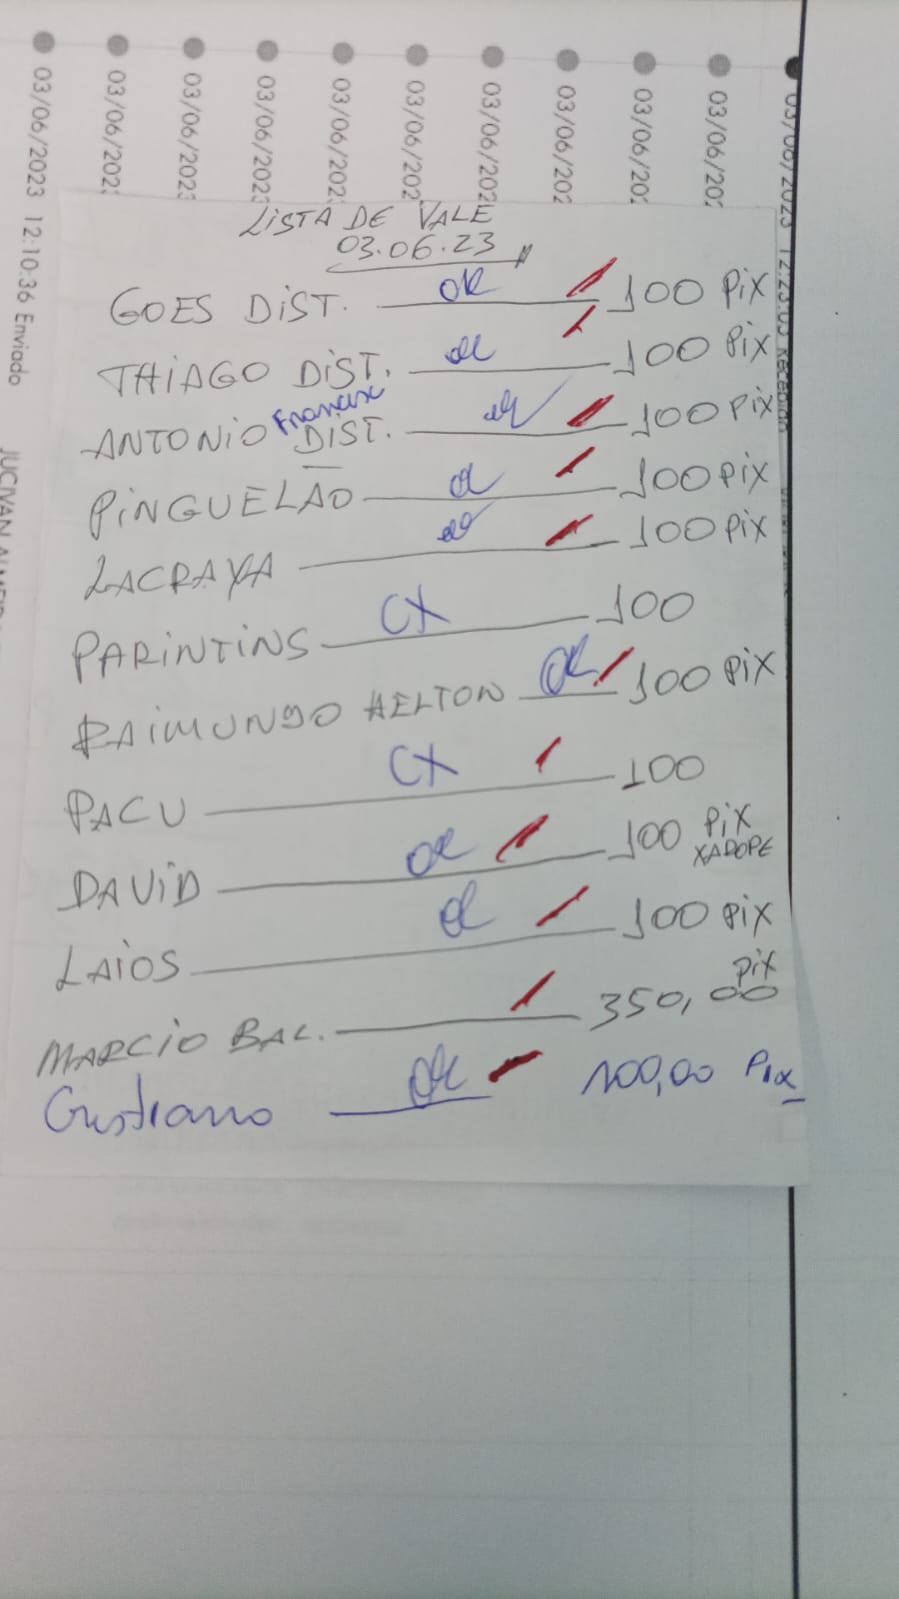 03/06/2023 12:10:36 Enviado
03/06/202
03/06/2023
03/06/2023
03/06/202
03/06/202
03/06/202
03/06/202
03/06/202
03/06/202
03/06/2023 12:23:05 Recebido
LISTA DE VALE
03.06.23
GOES DIST. OK 100 PIX
THIAGO DIST. OK 100 PIX
ANTONIO Francisc DIST. OK 100 PIX
PINGUELÃO OK 100 PIX
LACRAYA OK 100 PIX
PARINTINS CX 100
RAIMUNDO HELTON OK 100 PIX
PACU CX 100
DAVID OK 100 PIX
XADOPE
LAIOS OK 100 PIX
MARCIO BAL. 350,00 PIX
Cristiano OK 100,00 Pix